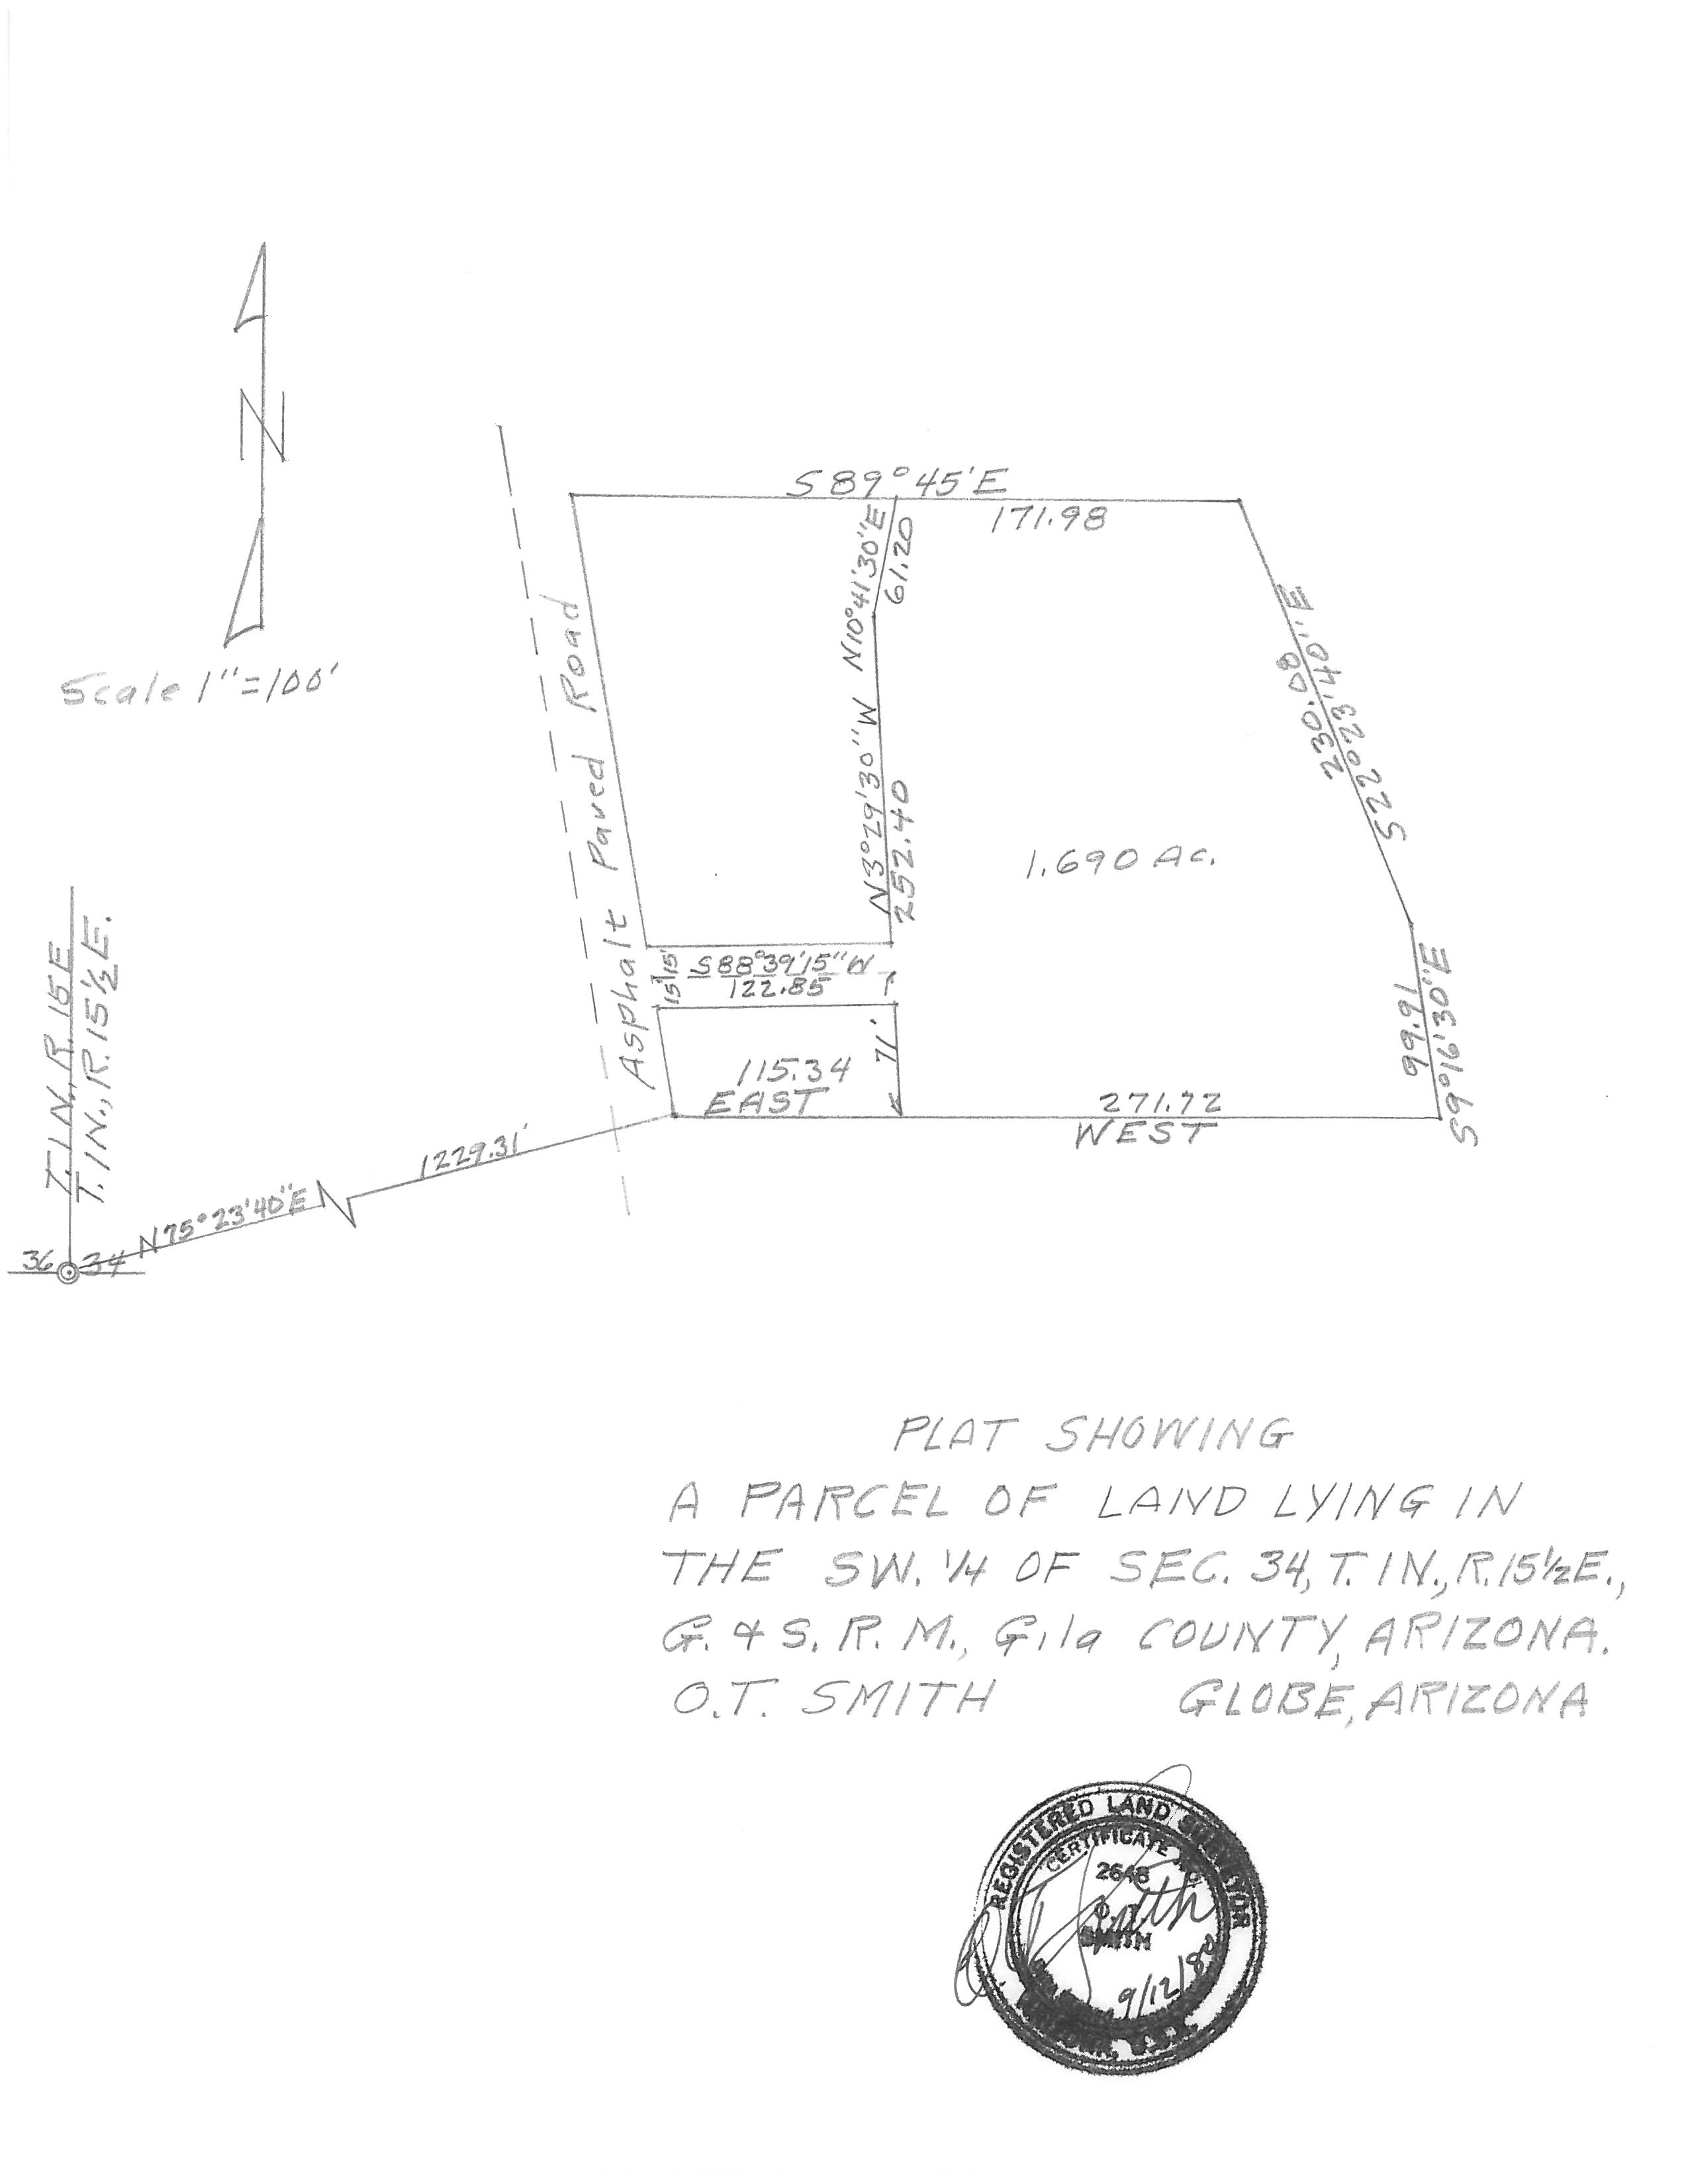 N
Scale 1"=100'
S 89° 45' E
171.98
N10°41'30"E
61.20
N3°29'30"W
252.40
230.08
S22°23'40"E
Asphalt Paved Road
1.690 Ac.
99.91
S9°16'30"E
15' 15'
S88°39'15"W
122.85
71'
115.34
EAST
271.72
WEST
T.1N., R.15E
T.1N., R.15½E.
1229.31'
N75°23'40"E
36 34
PLAT SHOWING
A PARCEL OF LAND LYING IN
THE SW. ¼ OF SEC. 34, T. 1N., R.15½E.,
G. & S. R. M., Gila COUNTY, ARIZONA.
O.T. SMITH GLOBE, ARIZONA
REGISTERED LAND SURVEYOR
CERTIFICATE NO.
2648
O. T.
SMITH
Smith
9/12/80
ARIZONA, U.S.A.